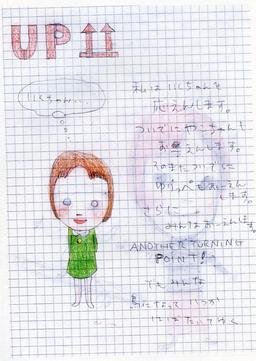 UP
いくちゃん...
私はいくちゃんを
応えんします。
ついでにやこちゃんも
お異えんします。
そのまたついでに
ゆりっぺもおーえん
します。
さらに
みんなおーえんします。
ANOTHER TURNING
POINT!
でもみんな
鳥になって いつか
はばたいてゆく